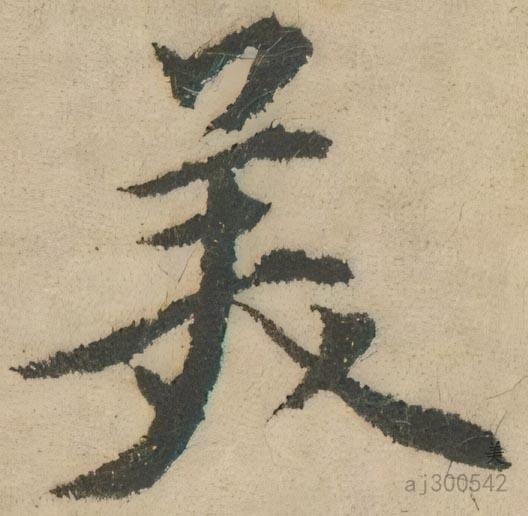 美
美
aj300542